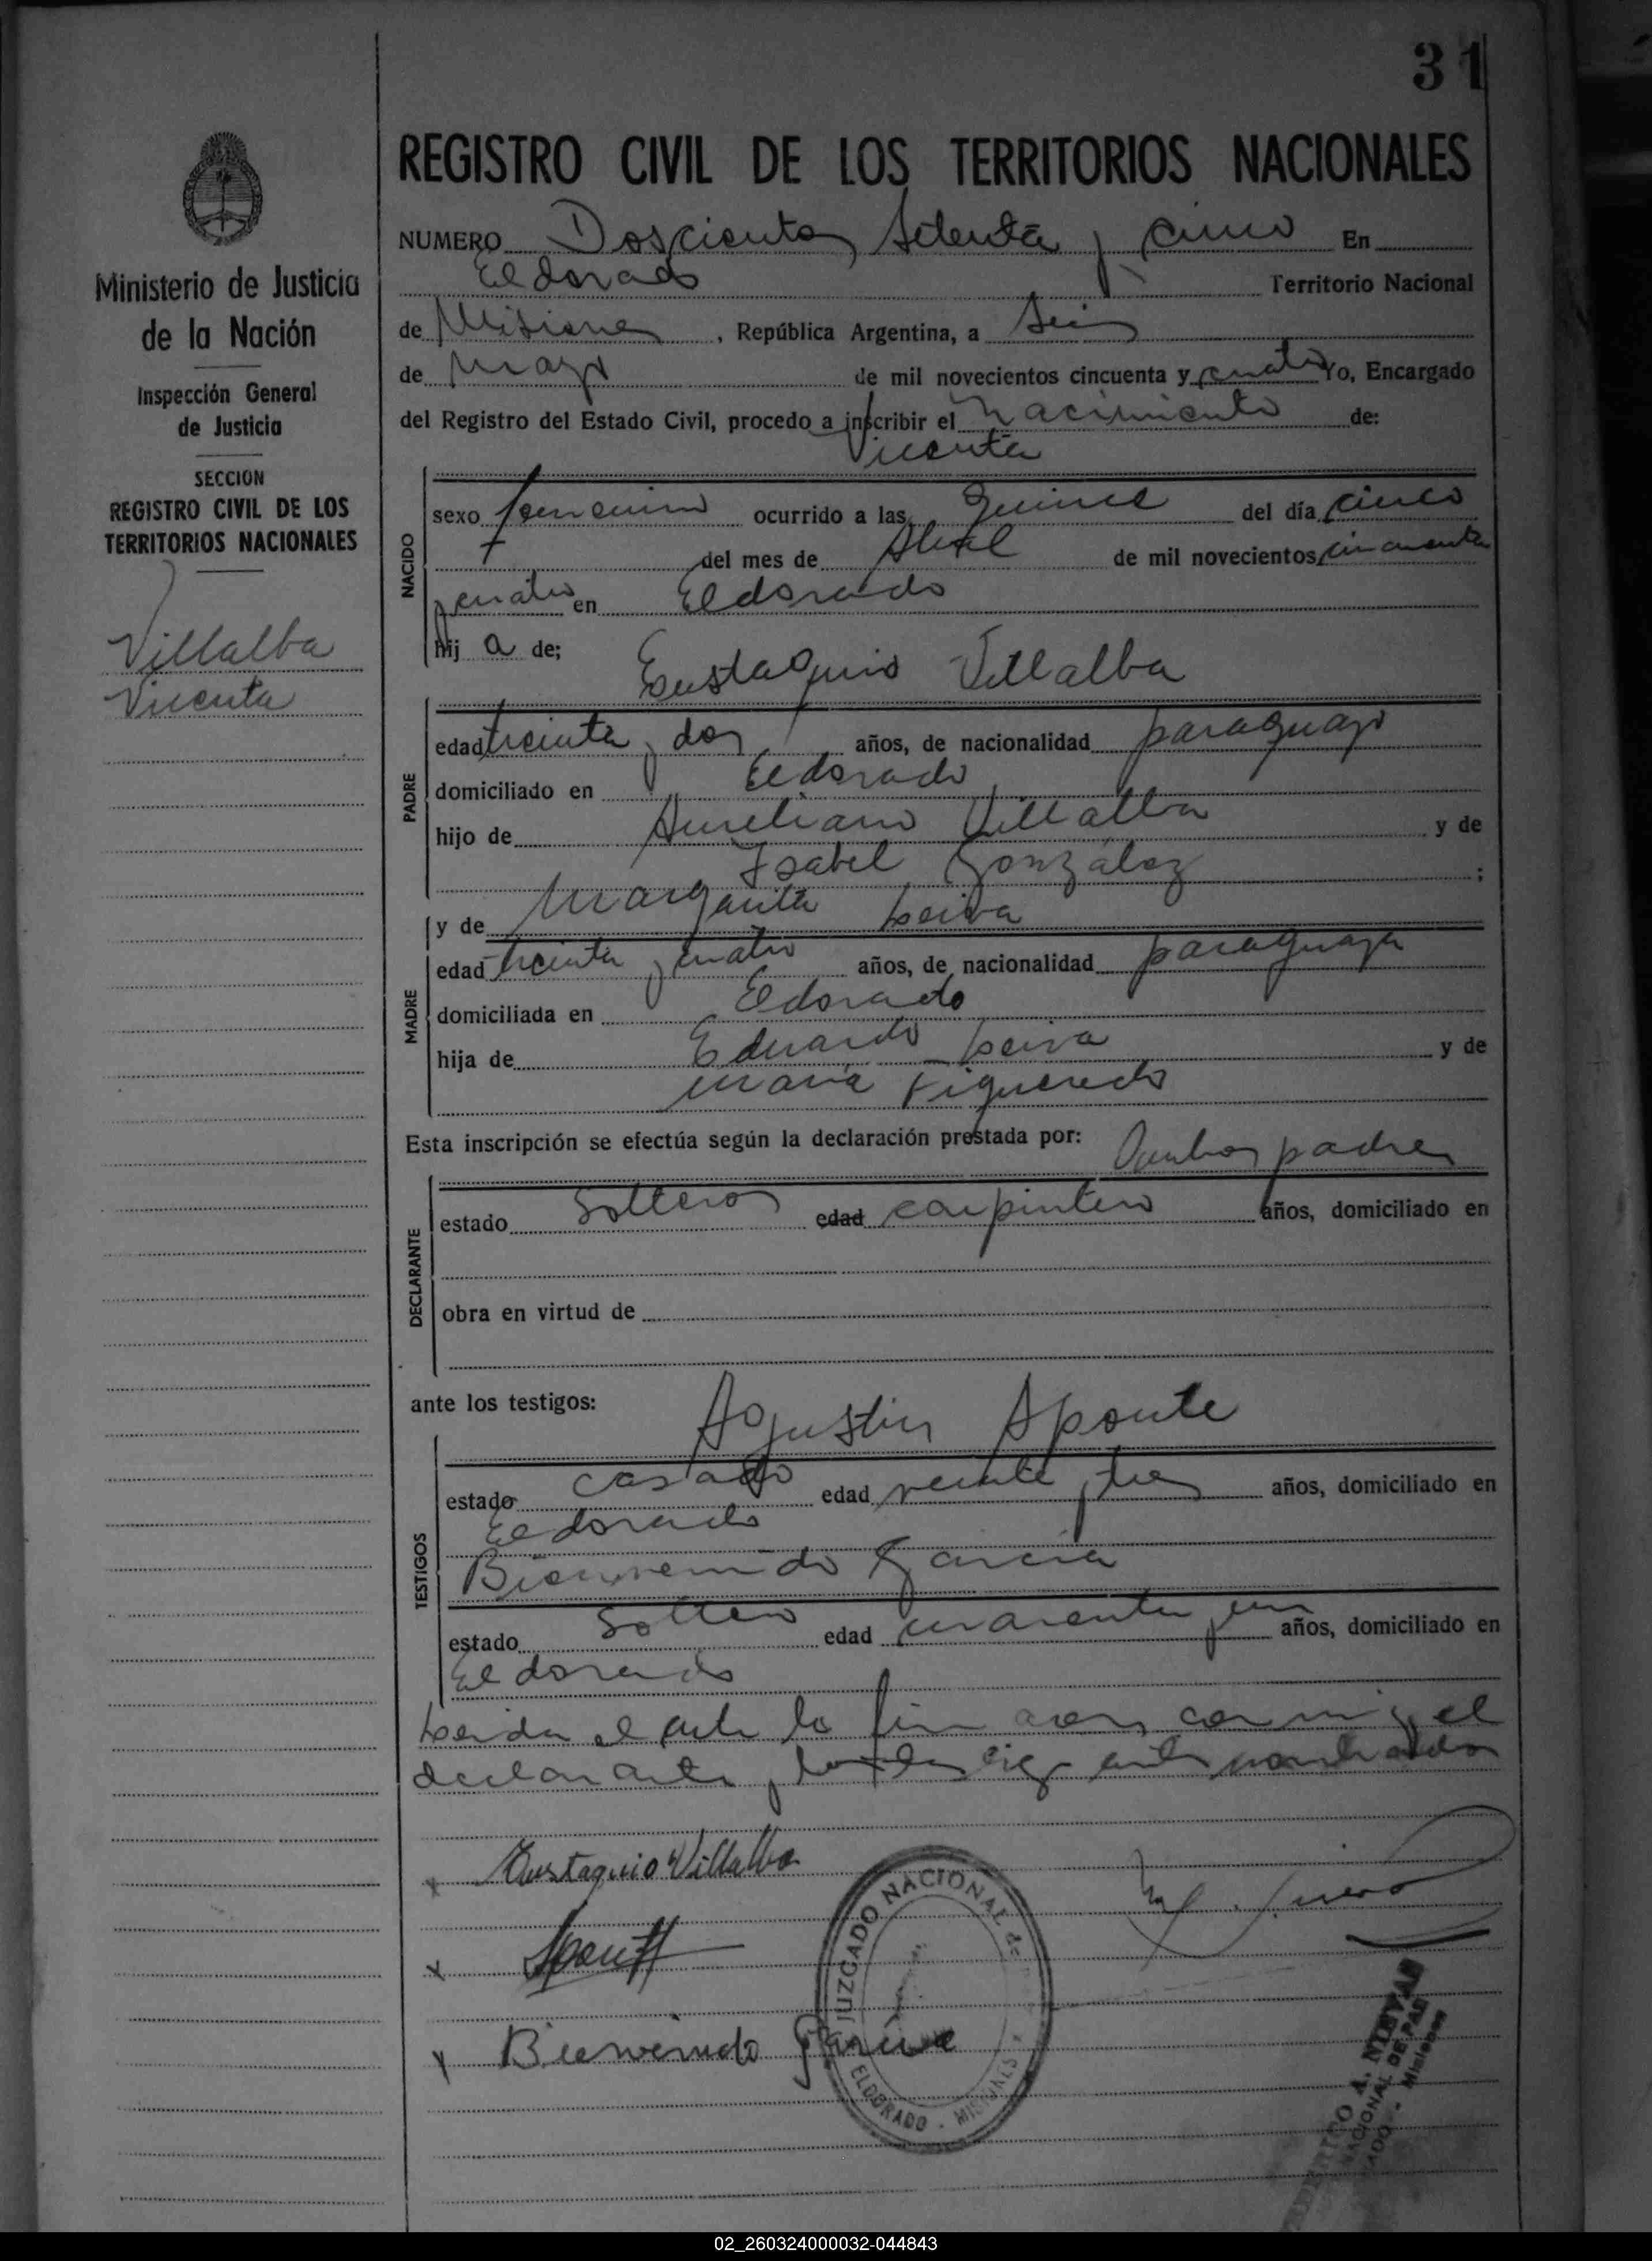 31
REGISTRO CIVIL DE LOS TERRITORIOS NACIONALES
Ministerio de Justicia
de la Nación
Inspección General
de Justicia
SECCION
REGISTRO CIVIL DE LOS
TERRITORIOS NACIONALES
Villalba
Vicenta
NUMERO Doscientos Setenta y cinco En
Eldorado Territorio Nacional
de Misiones, República Argentina, a Seis
de Mayo de mil novecientos cincuenta y cuatro Yo, Encargado
del Registro del Estado Civil, procedo a inscribir el nacimiento de:
Vicenta
NACIDO
sexo femenino ocurrido a las quince del día cinco
del mes de Abril de mil novecientos cincuenta
y cuatro en Eldorado
hij a de;
Eustaquio Villalba
PADRE
edad treinta y dos años, de nacionalidad paraguayo
domiciliado en Eldorado
hijo de Aureliano Villalba y de
Isabel González ;
y de Margarita Leiva
MADRE
edad treinta y cuatro años, de nacionalidad paraguaya
domiciliada en Eldorado
hija de Eduardo Leiva y de
María Figueredo
Esta inscripción se efectúa según la declaración prestada por: Ambos padres
DECLARANTE
estado Solteros edad carpintero años, domiciliado en
obra en virtud de
ante los testigos: Agustin Aponte
TESTIGOS
estado casado edad veinte y tres años, domiciliado en
Eldorado
Bienvenido García
estado Soltero edad cuarenta y un años, domiciliado en
Eldorado
Leida el acta la firmaron conmigo el
declarante y los testigos nombrados
x Eustaquio Villalba
x
x Bienvenido García
JUZGADO NACIONAL de
ELDORADO - MISIONES
A. NIEVAS
NACIONAL DE PAZ
Misiones
02_260324000032-044843